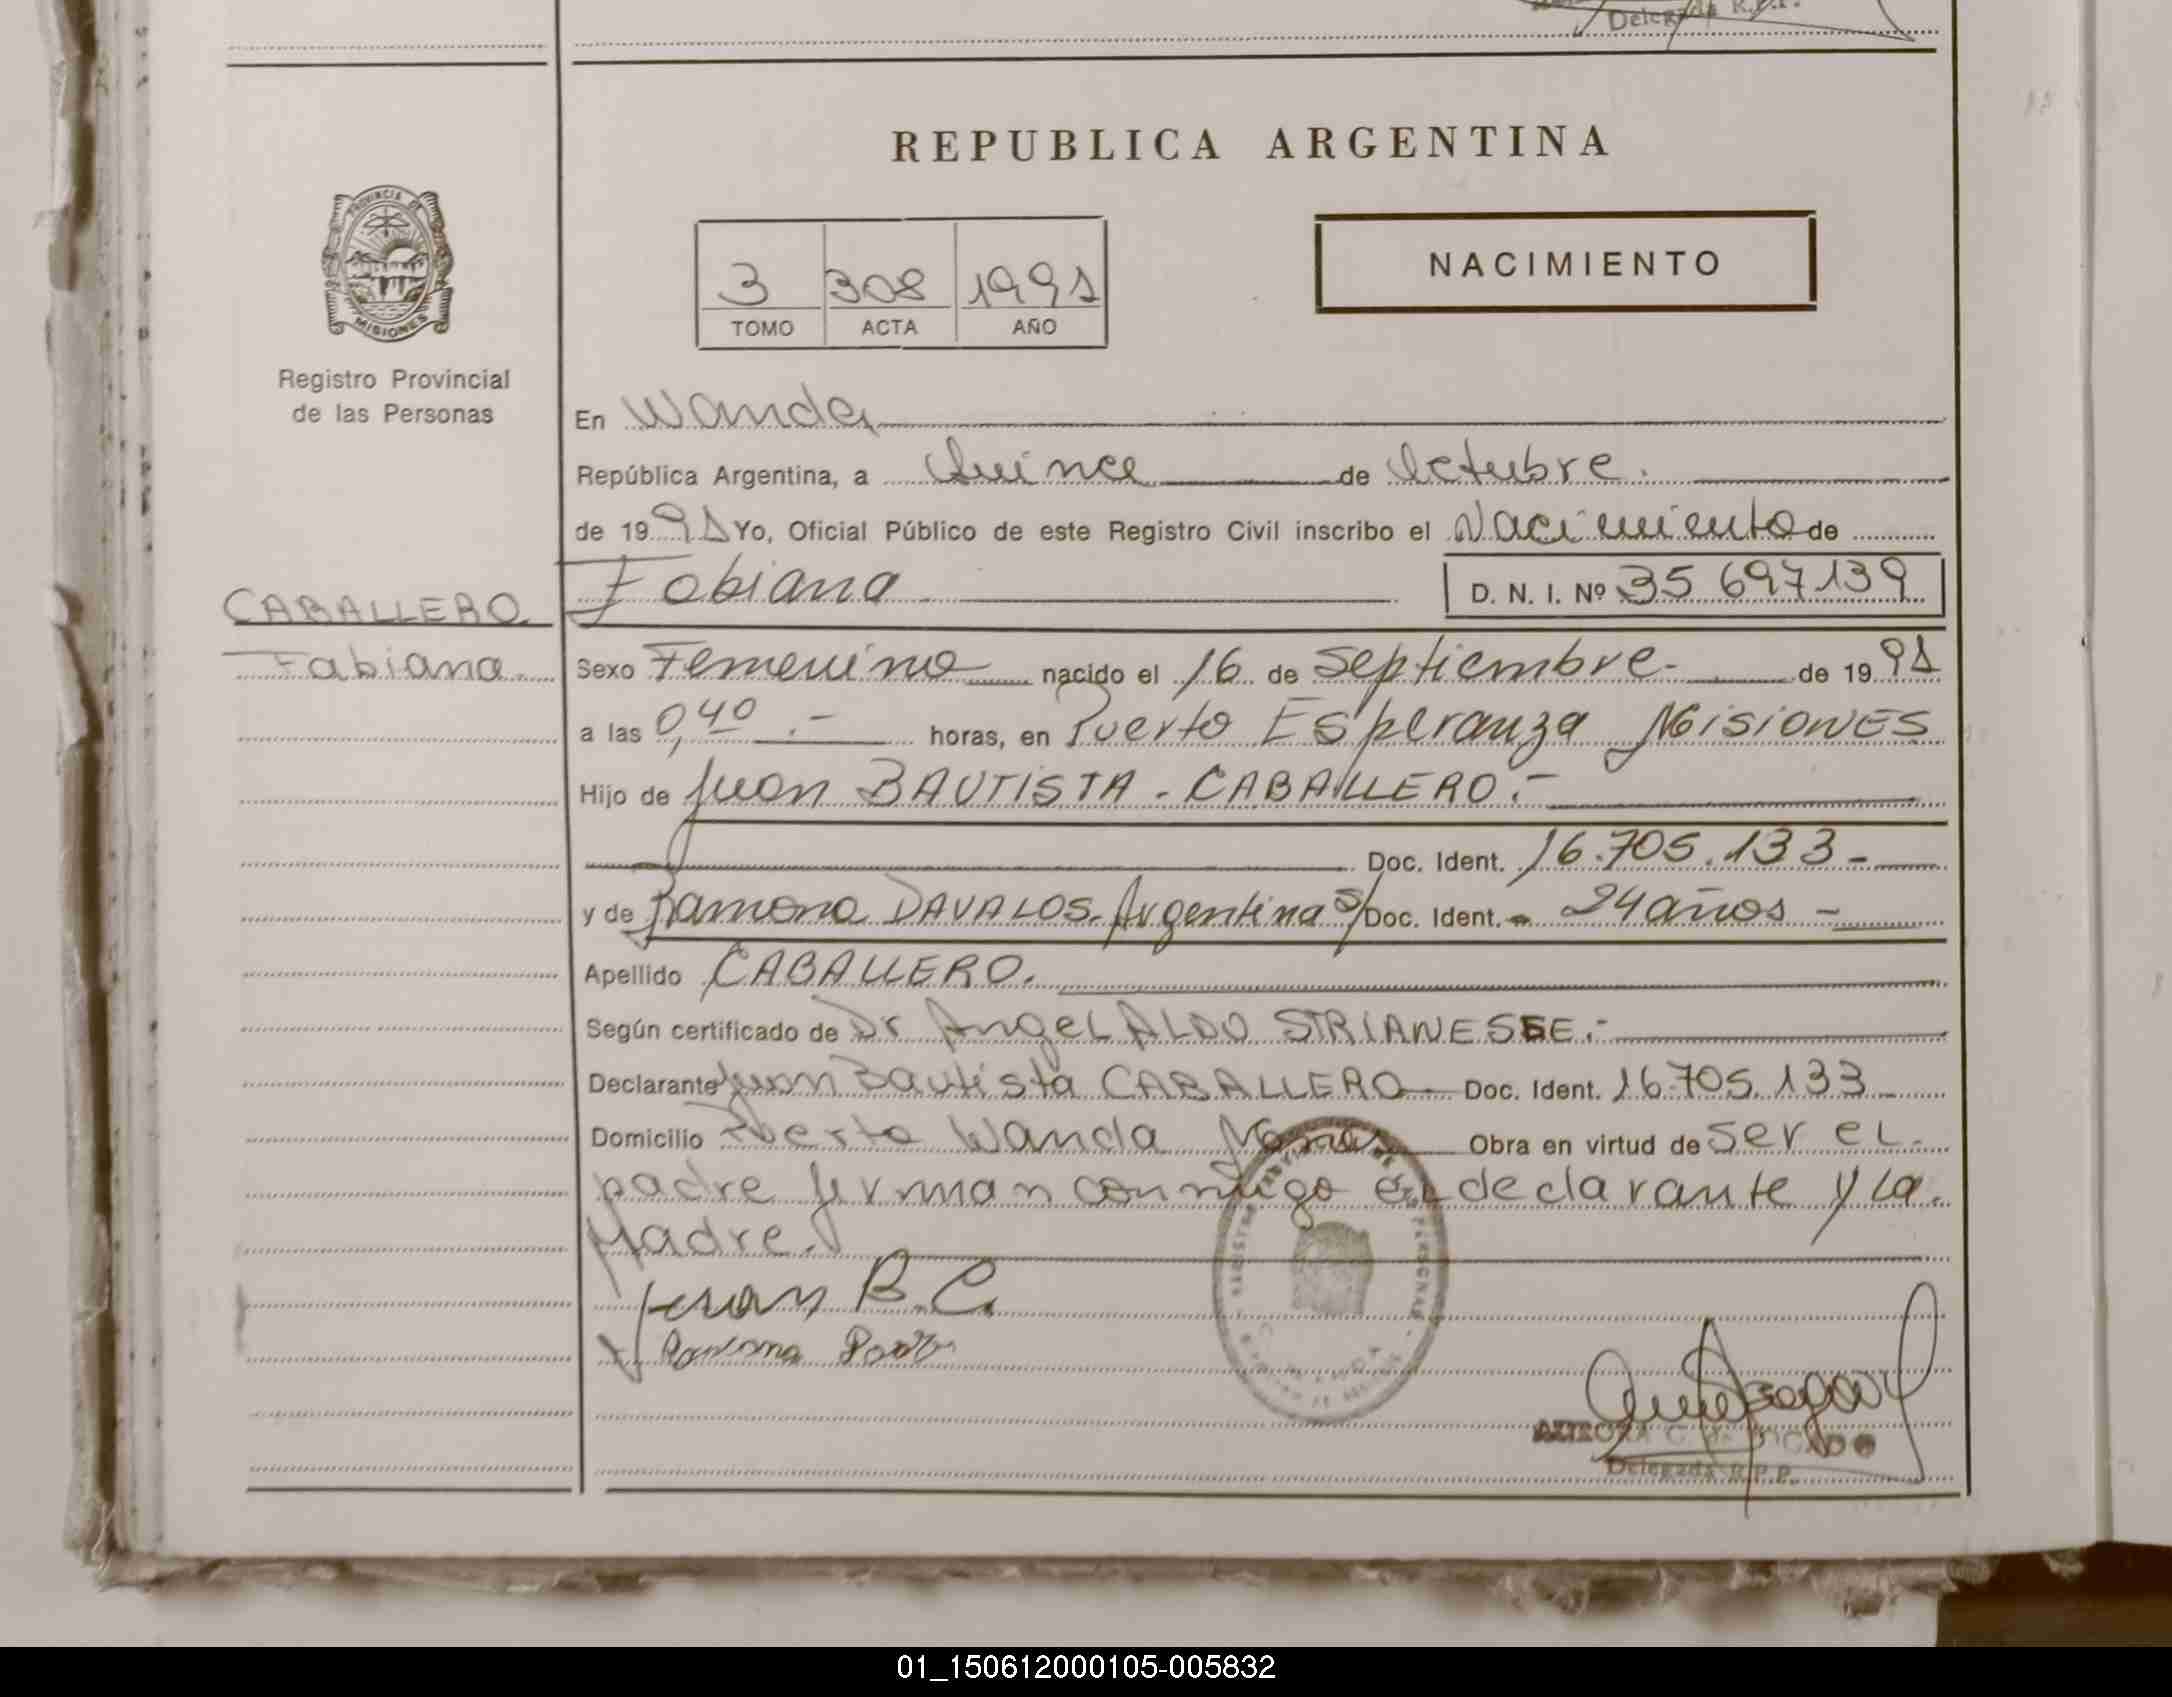 Delegada R.P.P.
REPUBLICA ARGENTINA
PROVINCIA DE
MISIONES
Registro Provincial
de las Personas
3 308 1991
TOMO ACTA AÑO
NACIMIENTO
En Wanda
República Argentina, a Quince de Octubre.
de 1991 Yo, Oficial Público de este Registro Civil inscribo el Nacimiento de
Fabiana D. N. I. Nº 35 697139
CABALLERO
Fabiana
Sexo Femenino nacido el 16 de Septiembre- de 1991
a las 0,40 .- horas, en Puerto Esperanza Misiones
Hijo de Juan BAUTISTA - CABALLERO.-
Doc. Ident. 16.705.133-
y de Ramona DAVALOS. Argentina s/ Doc. Ident. - 24 años -
Apellido CABALLERO.
Según certificado de Dr Angel ALDO STRIANESSE.-
Declarante Juan Bautista CABALLERO- Doc. Ident. 16.705.133
Domicilio Puerto Wanda Obra en virtud de ser el
padre firman conmigo el declarante y la
Madre.
Juan B. C.
Ramona
Delegada R.P.P.
01_150612000105-005832